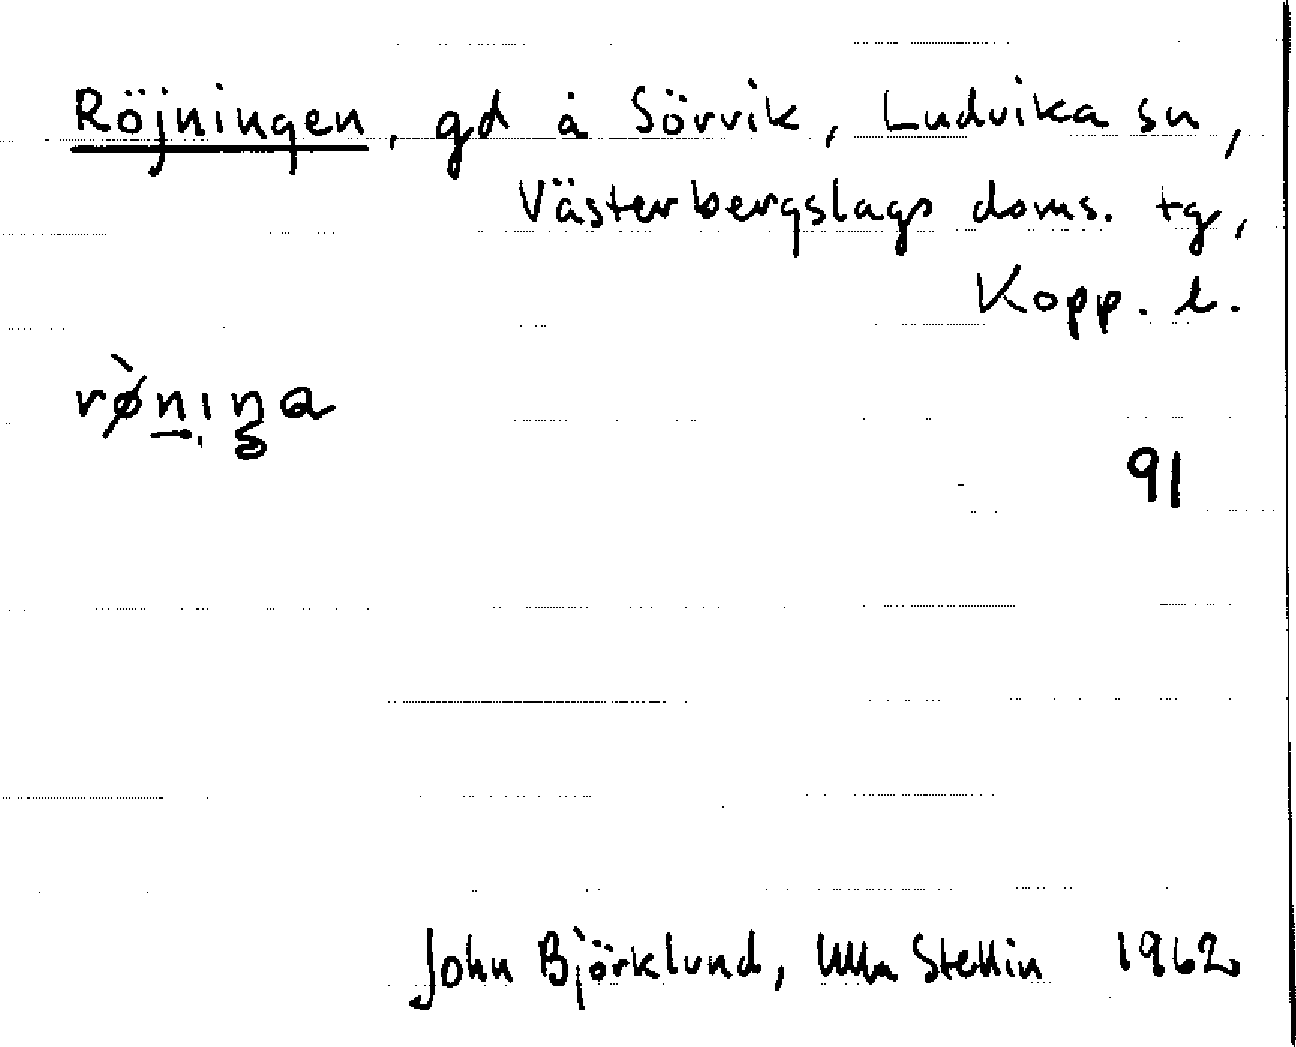 Röjningen, gd å Sörvik, Ludvika sn,
Västerbergslags doms. tg,
Kopp. l.
rø̀niŋa
91
John Björklund, Ulla Stellin 1962